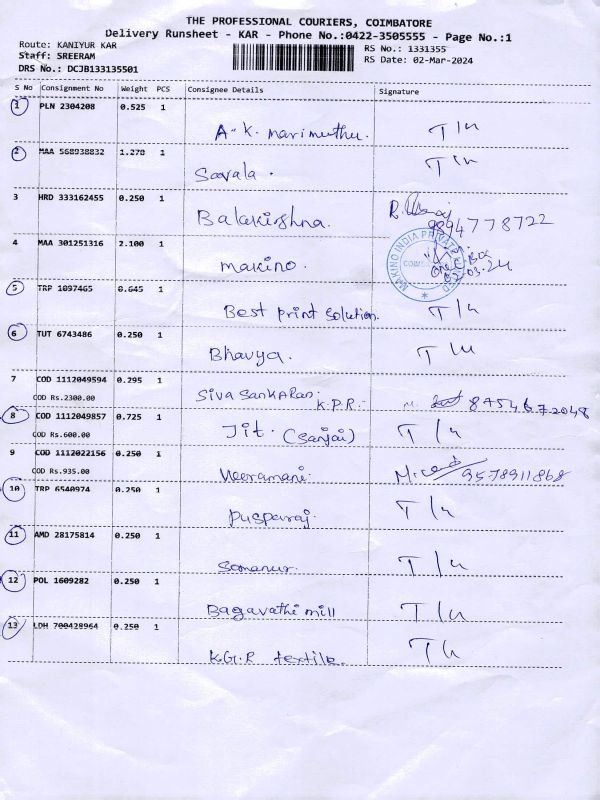 THE PROFESSIONAL COURIERS, COIMBATORE
Delivery Runsheet - KAR - Phone No.:0422-3505555 - Page No.:1
Route: KANIYUR KAR RS No.: 1331355
Staff: SREERAM RS Date: 02-Mar-2024
DRS No.: DCJB133135501
S No Consignment No Weight PCS Consignee Details Signature
1 PLN 2304208 0.525 1
A.K. Marimuthu. T/L
2 MAA 568938832 1.270 1
Savala.
3 HRD 333162455 0.250 1
Balakirshna. 9894778722
4 MAA 301251316 2.100 1
makino. MAKINO INDIA PRIVATE LIMITED
02-03-24
5 TRP 1097465 0.645 1
Best print solution.
6 TUT 6743486 0.250 1
Bhavya.
7 COD 1112049594 0.295 1
COD Rs.2300.00 Siva Sankaran. K.P.R.
8 COD 1112049857 0.725 1
COD Rs.600.00 Jit. (Sanjai)
9 COD 1112022156 0.250 1
COD Rs.935.00 Veeramani. 9578911868
10 TRP 6540974 0.250 1
Pusparaj.
11 AMD 28175814 0.250 1
Somanur.
12 POL 1609282 0.250 1
Bagavathi mill
13 LDH 700428964 0.250 1
K.G.R textile.